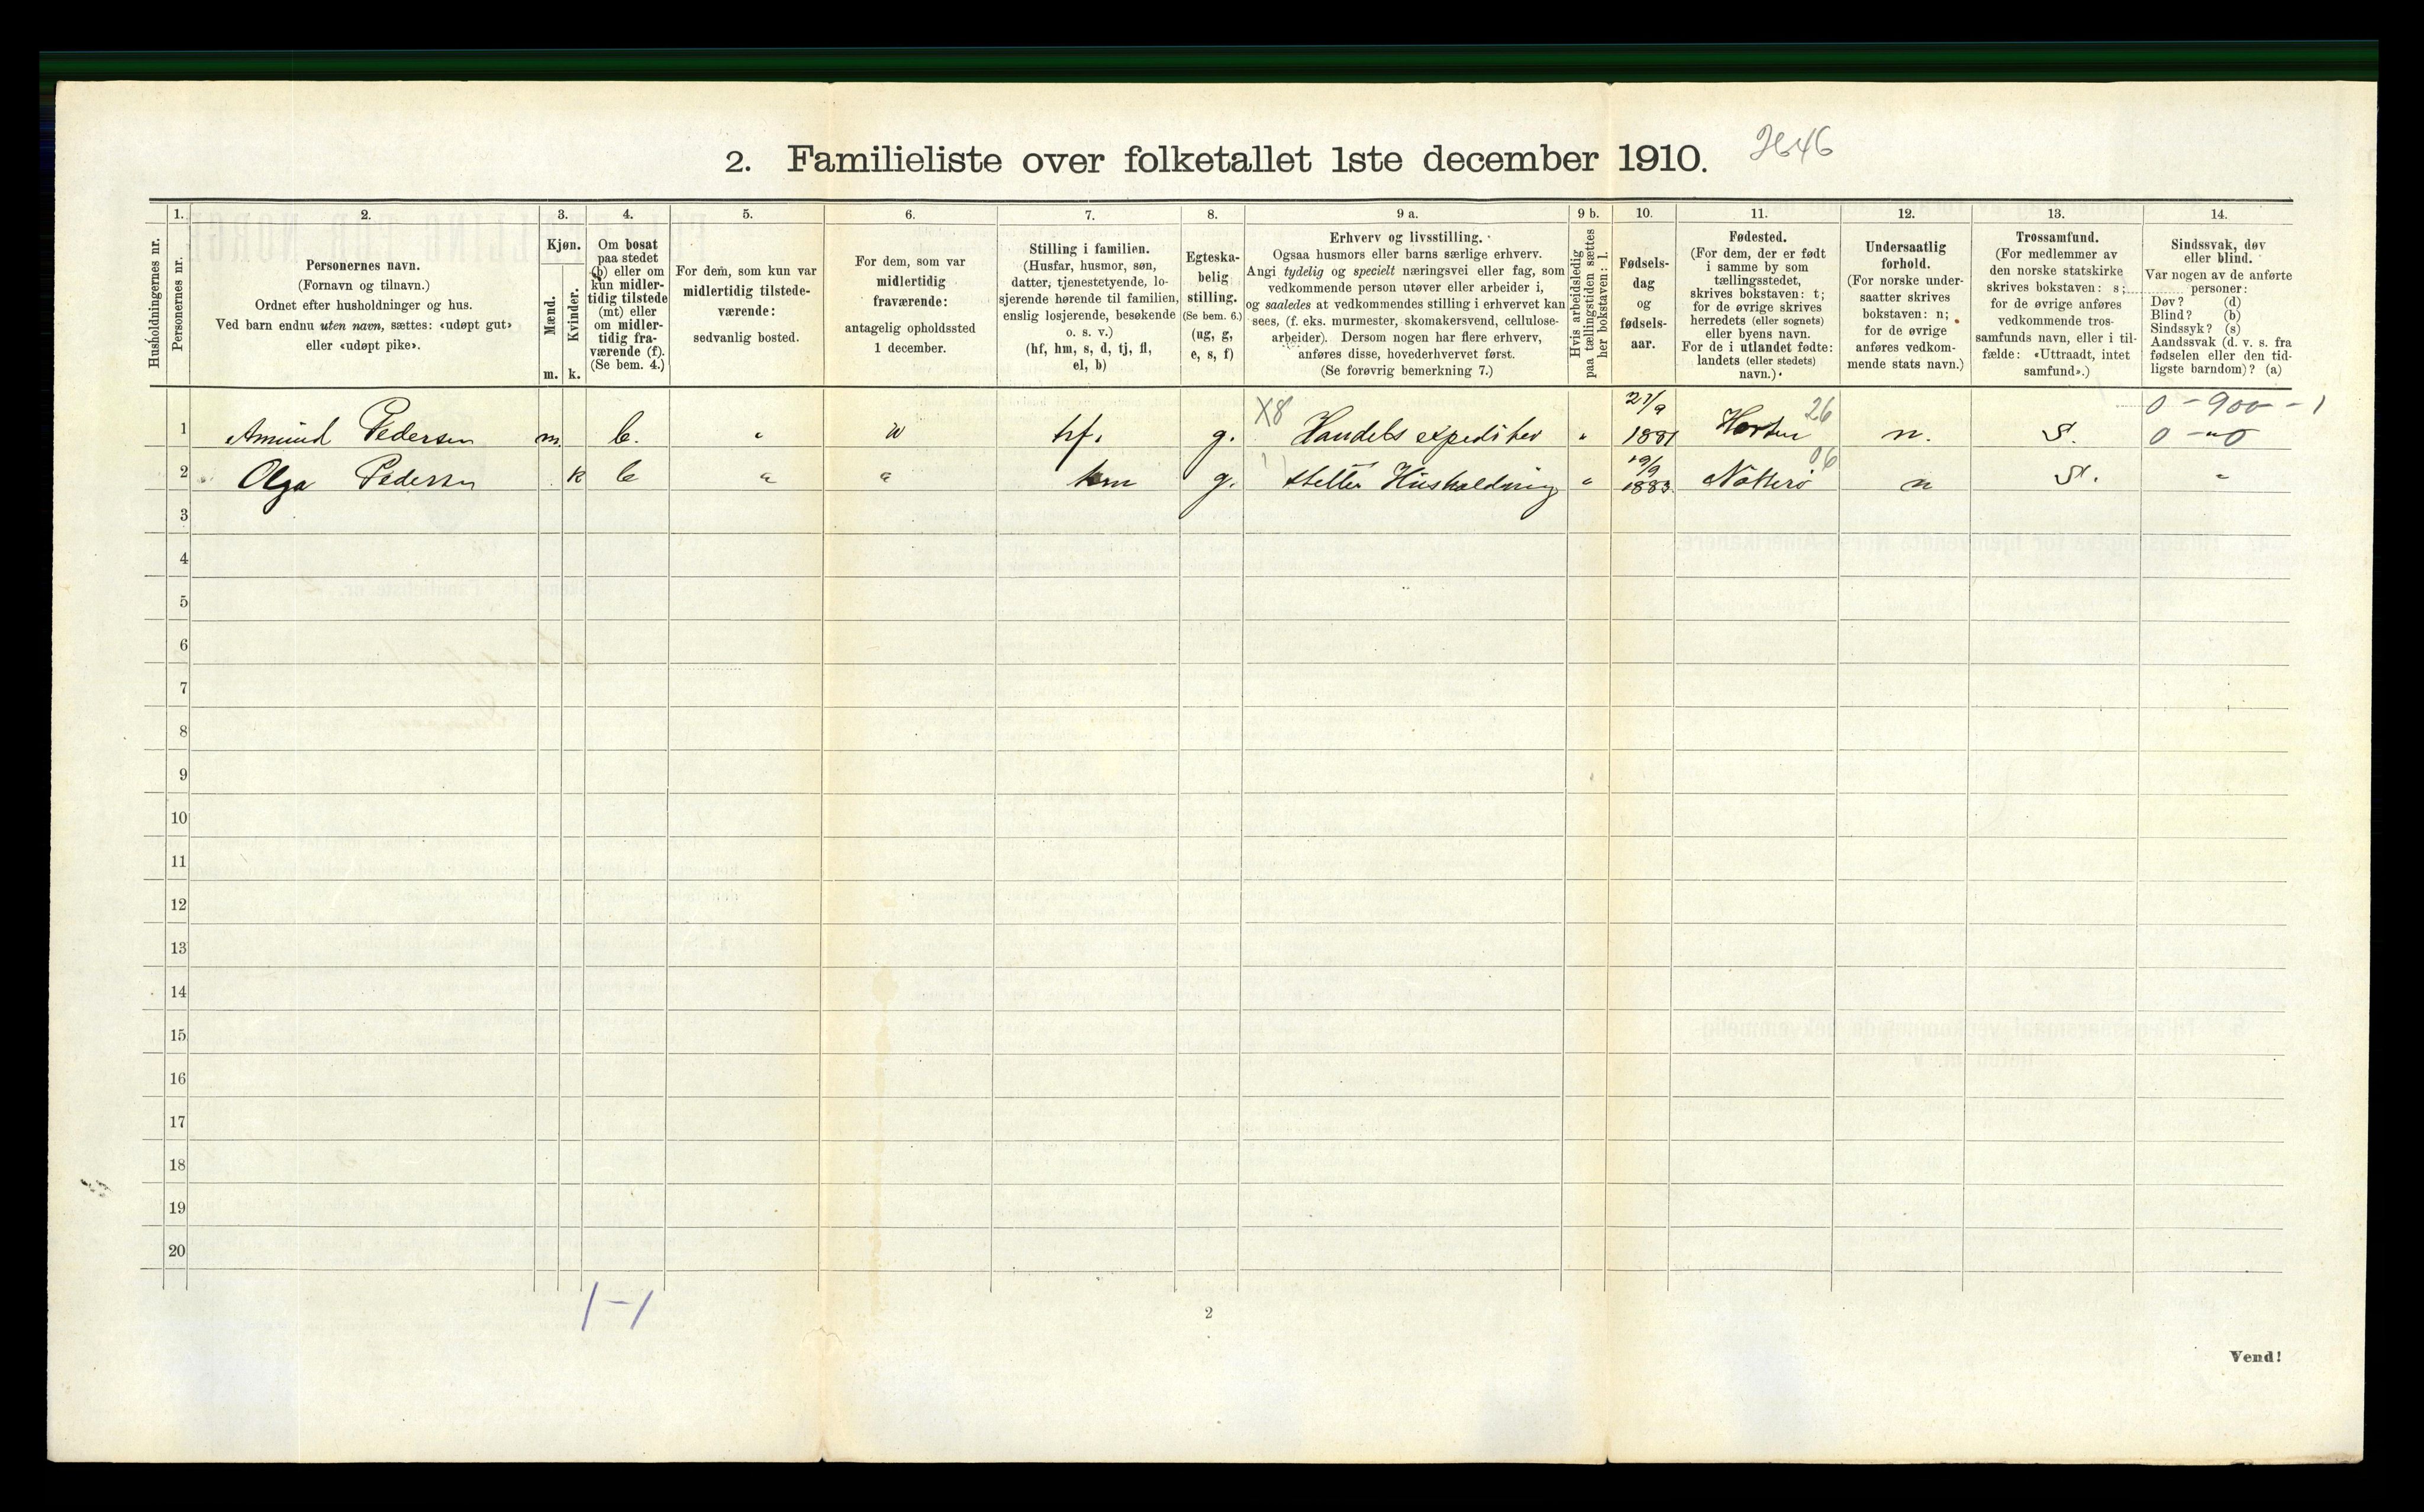 2. Familieliste over folketallet 1ste december 1910.
1. 2. 3. 4. 5. 6. 7. 8. 9 a. 9 b. 10. 11. 12. 13. 14.
Husholdningernes nr.
Personernes nr.
Personernes navn.
(Fornavn og tilnavn.)
Ordnet efter husholdninger og hus.
Ved barn endnu uten navn, sættes: «udøpt gut»
eller «udøpt pike».
Kjøn.
Mænd.
Kvinder.
m. k.
Om bosat
paa stedet
(b) eller om
kun midler-
tidig tilstede
(mt) eller
om midler-
tidig fra-
værende (f).
(Se bem. 4.)
For dem, som kun var
midlertidig tilstede-
værende:
sedvanlig bosted.
For dem, som var
midlertidig
fraværende:
antagelig opholdssted
1 december.
Stilling i familien.
(Husfar, husmor, søn,
datter, tjenestetyende, lo-
sjerende hørende til familien,
enslig losjerende, besøkende
o. s. v.)
(hf, hm, s, d, tj, fl,
el, b)
Egteska-
belig
stilling.
(Se bem. 6.)
(ug, g,
e, s, f)
Erhverv og livsstilling.
Ogsaa husmors eller barns særlige erhverv.
Angi tydelig og specielt næringsvei eller fag, som
vedkommende person utøver eller arbeider i,
og saaledes at vedkommendes stilling i erhvervet kan
sees, (f. eks. murmester, skomakersvend, cellulose-
arbeider). Dersom nogen har flere erhverv,
anføres disse, hovederhvervet først.
(Se forøvrig bemerkning 7.)
Hvis arbeidsledig
paa tællingstiden sættes
her bokstaven: l.
Fødsels-
dag
og
fødsels-
aar.
Fødested.
(For dem, der er født
i samme by som
tællingsstedet,
skrives bokstaven: t;
for de øvrige skrives
herredets (eller sognets)
eller byens navn.
For de i utlandet fødte:
landets (eller stedets)
navn.)
Undersaatlig
forhold.
(For norske under-
saatter skrives
bokstaven: n;
for de øvrige
anføres vedkom-
mende stats navn.)
Trossamfund.
(For medlemmer av
den norske statskirke
skrives bokstaven: s;
for de øvrige anføres
vedkommende tros-
samfunds navn, eller i til-
fælde: «Uttraadt, intet
samfund».)
Sindssvak, døv
eller blind.
Var nogen av de anførte
personer:
Døv? (d)
Blind? (b)
Sindssyk? (s)
Aandssvak (d. v. s. fra
fødselen eller den tid-
ligste barndom)? (a)
X8 26 0 - 900 - 1
1 Amund Pedersen m. b. " " hf. g. Handels expeditør " 1881 Horten n. S. 0 - 0
06
2 Olga Pedersen k b " " hm g. steller Husholdning " 19/9 1883. Nøtterø n S. "
3
4
5
6
7
8
9
10
11
12
13
14
15
16
17
18
19
20
1-1
2
Vend!